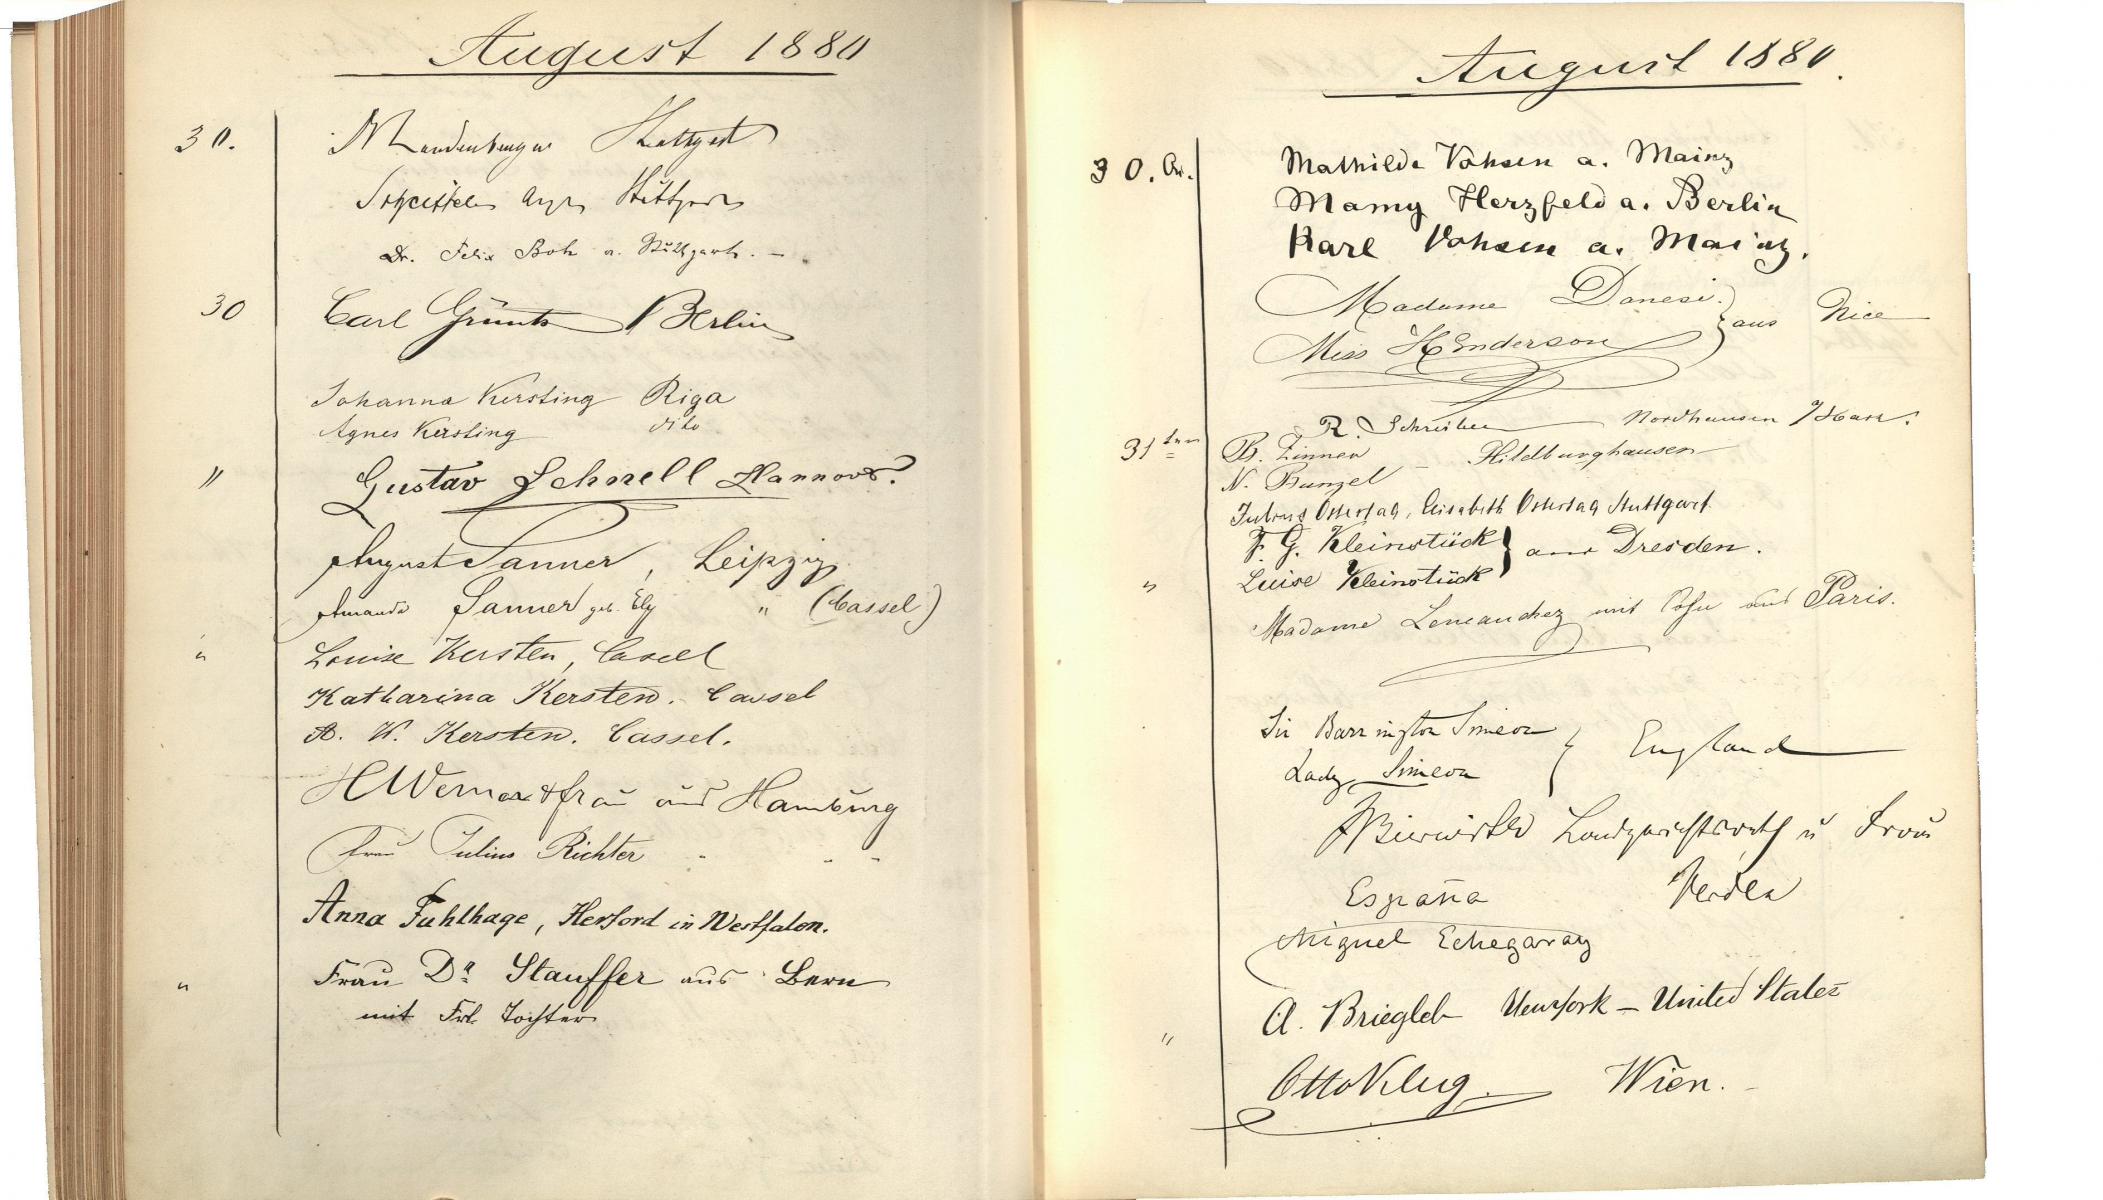 August 1880
30.
Stuttgart
Stuttgart
Dr. Felix Boh a. Stuttgart. –
30 Carl Grünt Berlin
Johanna Kersting Riga
Agnes Kersting dito
" Gustav Schnell Hannover.
August Sanner, Leipzig
Amanda Sanner geb. Ely " (Cassel)
" Louise Kersten, Cassel
Katharina Kersten. Cassel
A. W. Kersten. Cassel.
H Werner & frau aus Hamburg
Frau Julius Richter " "
Anna Fuhlhage, Herford in Westfalen.
" Frau Dr. Stauffer aus Bern
mit Frl. Tochter
August 1880.
30. Mathilde Vohsen a. Mainz
Mamy Herzfeld a. Berlin
Karl Vohsen a. Mainz.
Madame Danesi.
Miss Henderson } aus Nice
R. Schreiber Nordhausen / Harz.
31ten B. Zinner – Hildburghausen
N. Bunzel
Julius Ostertag, Elisabeth Ostertag Stuttgart.
F. G. Kleinstück } aus Dresden.
" Luise Kleinstück
Madame Lencauchez mit Sohn aus Paris.
Sir Barrington Simeon } England
Lady Simeon
Bierwirth Landgerichtsrath u Frau
España Verden
Miguel Echegaray
A. Briegleb Newyork – United States
" Otto Klug. Wien. –